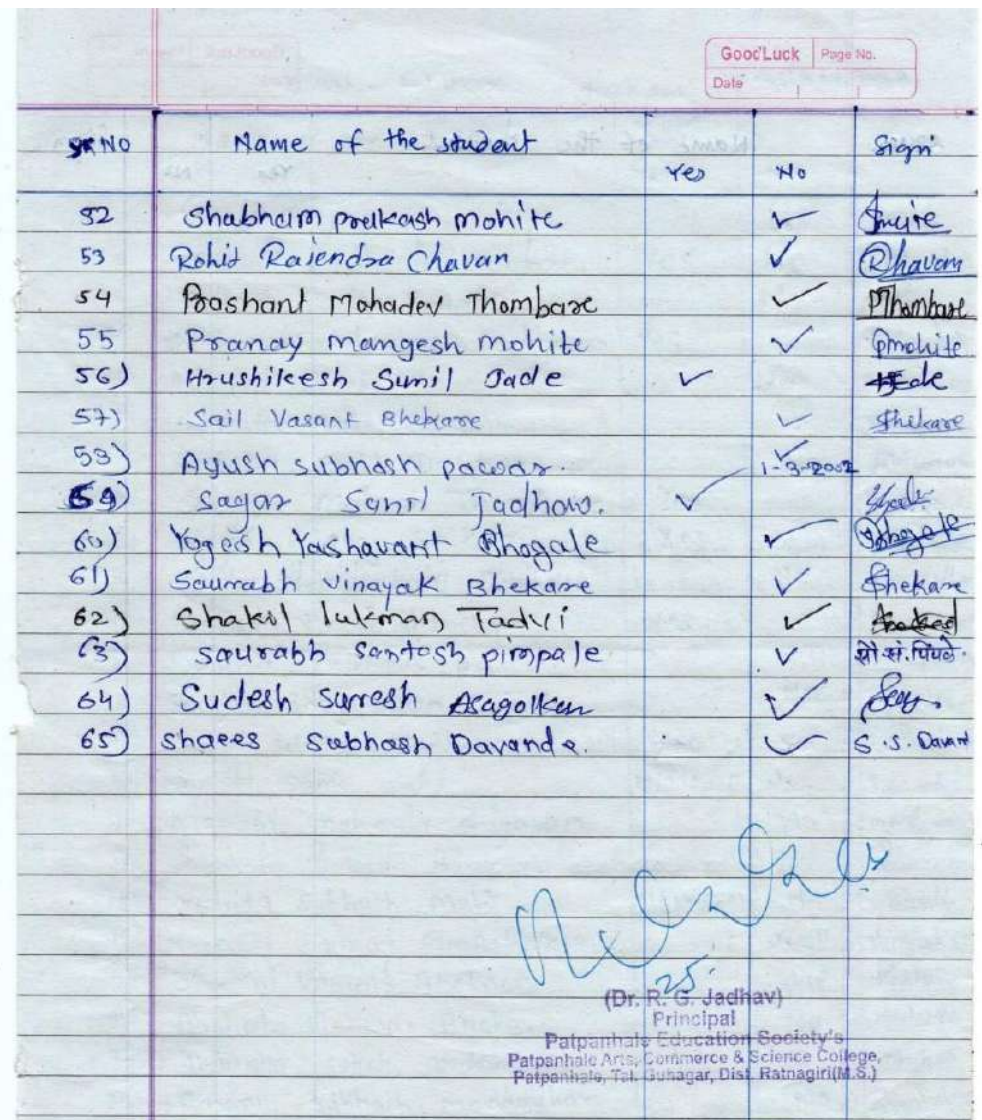 Good Luck Page No.
Date
SR NO Name of the student Sign
Yes No
52 Shabham prakash mohite ✓
53 Rohit Rajendra Chavan ✓ Rhavan
54 Prashant Mahadev Thombare ✓ PThombare
55 Pranay mangesh mohite ✓ Pmohite
56) Hrushikesh Sunil Jade ✓
57) Sail Vasant Bhekare ✓ Bhekare
58) Ayush subhash pawar. ✓ 1-3-2002
59) Sagar Sunil Jadhav. ✓
60) Yogesh Yashavant Bhogale ✓ Bhogale
61) Saurabh Vinayak Bhekare ✓ Bhekare
62) Shakil lukman Tadvi ✓
63) saurabh santosh pimpale ✓ सौ. सं. पिंपळे.
64) Sudesh suresh Asagolkar ✓
65) shaees Subhash Davande. ✓ S.S. Davand
25.
(Dr. R. G. Jadhav)
Principal
Patpanhale Education Society's
Patpanhale Arts, Commerce & Science College,
Patpanhale, Tal. Guhagar, Dist. Ratnagiri(M.S.)